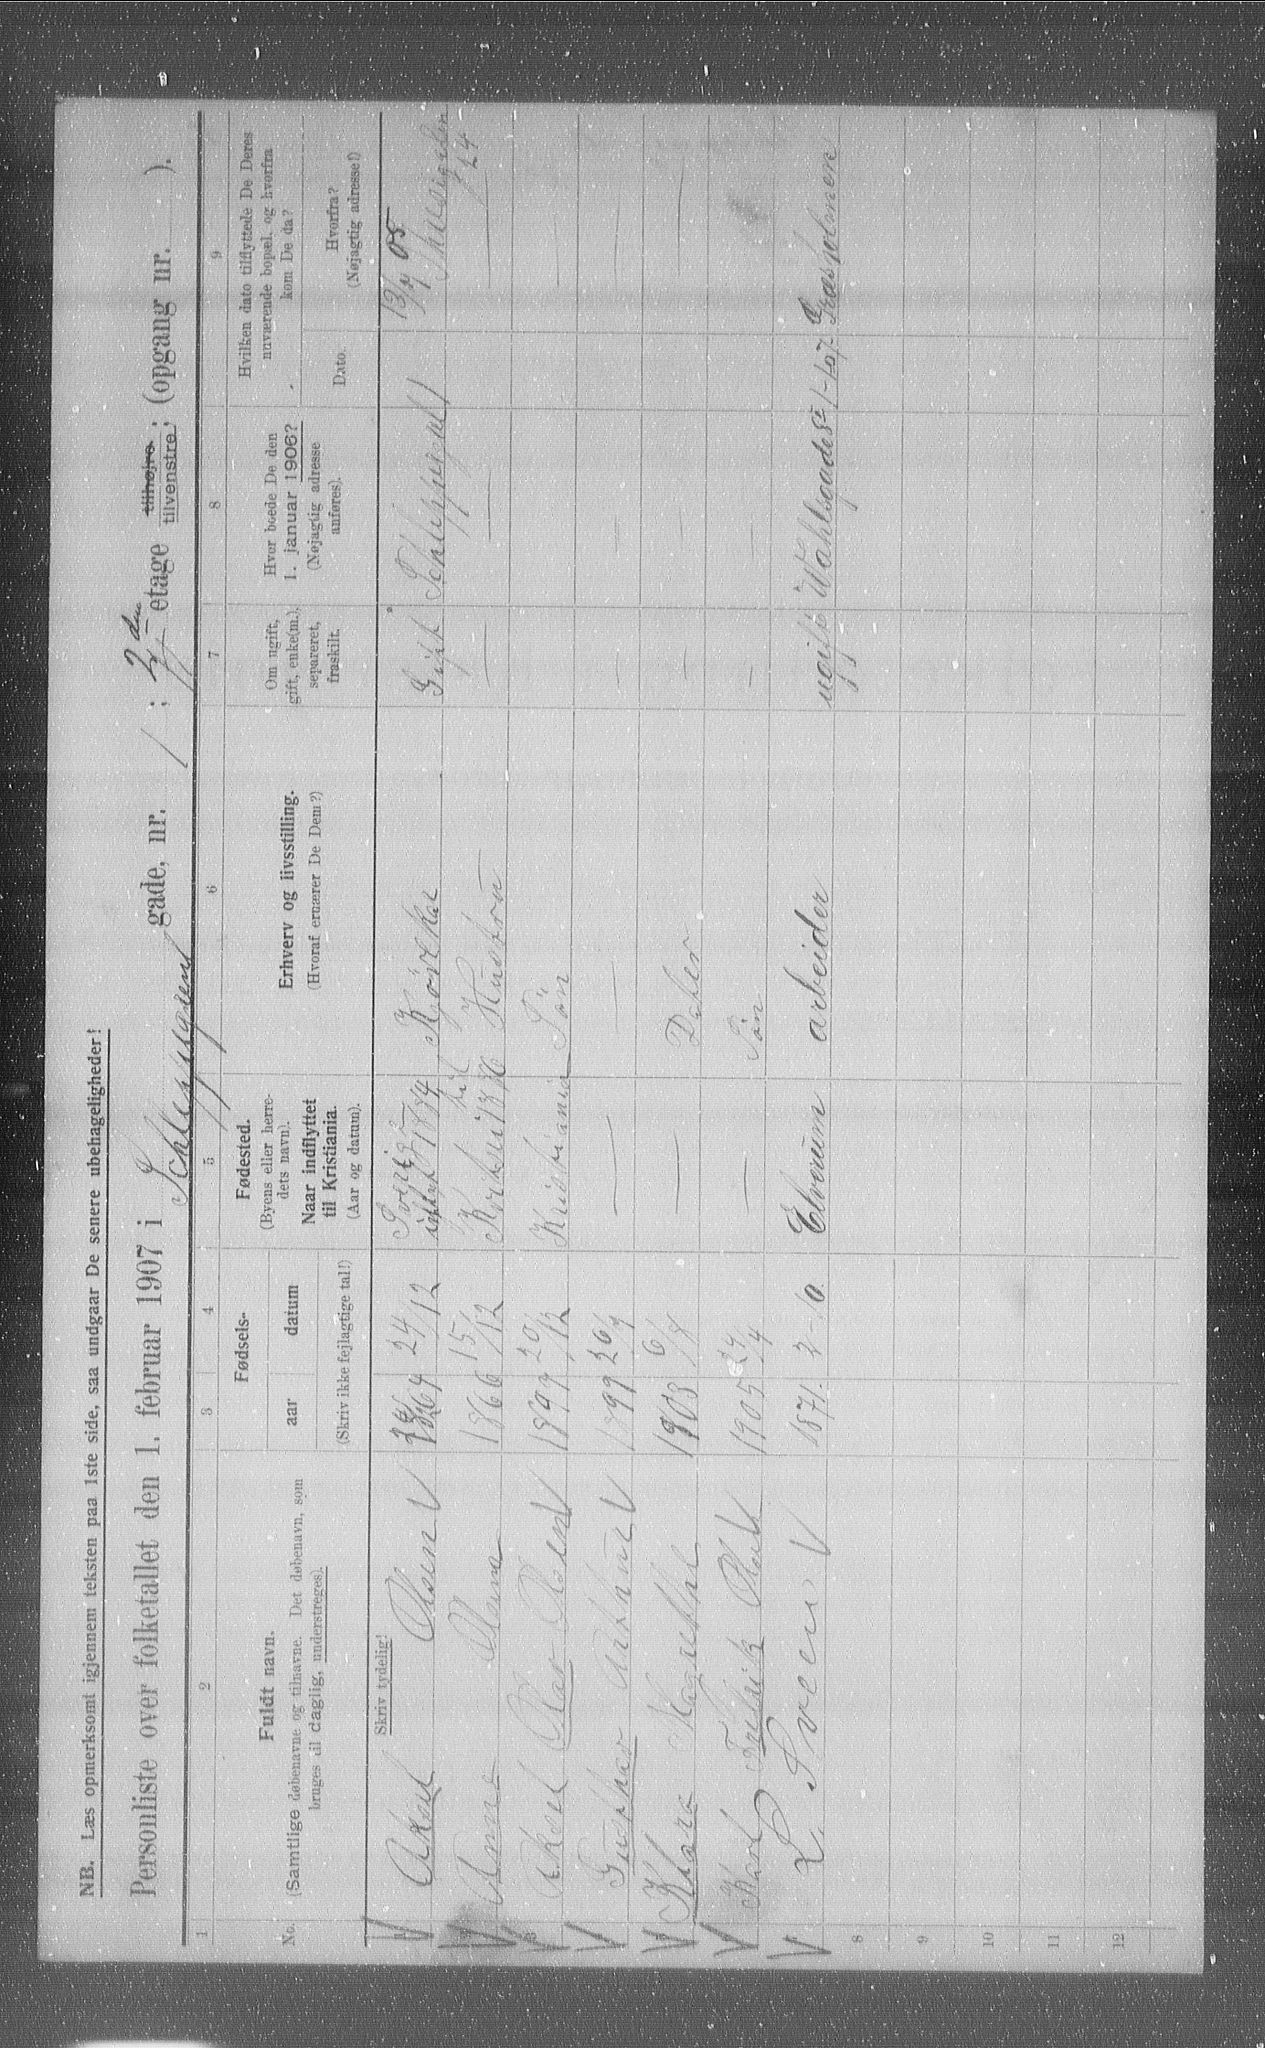 NB. Læs opmerksomt igjennem teksten paa 1ste side, saa undgaar De senere ubehageligheder!
Personliste over folketallet den 1. februar 1907 i Schleppegrel gade, nr. 1 ; 2den etage tilhøjre tilvenstre; (opgang nr. ).
1 2 3 4 5 6 7 8 9
No.
Fuldt navn.
(Samtlige døbenavne og tilnavne. Det døbenavn, som
bruges til daglig, understreges).
Fødsels-
aar datum
(Skriv ikke fejlagtige tal!)
Fødested.
(Byens eller herre-
dets navn).
Naar indflyttet
til Kristiania.
(Aar og datum).
Erhverv og livsstilling.
(Hvoraf ernærer De Dem?)
Om ugift,
gift, enke(m.),
separeret,
fraskilt.
Hvor boede De den
1. januar 1906?
(Nøjagtig adresse
anføres).
Hvilken dato tilflyttede De Deres
nuværende bopæl, og hvorfra
kom De da?
Dato.
Hvorfra?
(Nøjagtig adresse!)
Skriv tydelig!
Aksel Olsen 1864 24/12 1884 Gift Schleppegrel 1 13/ 05 24
Anna Olsen 1866 15/12 Hustru — —
3 Aksel Olav Olsen 1897 20/12 Kristiania Søn
Gusthav Arthur 1899 26/9 — — — — —
Klara Margrethe 1903 6/9 — Datter — — —
Karl Fredrik Olaf 1905 24/4 — Søn —
L. Sven 1871. 2-10. Elverum arbeider ugift Wahlsgade 8 1-1-07 Græsholmen
8
9
10
11
12